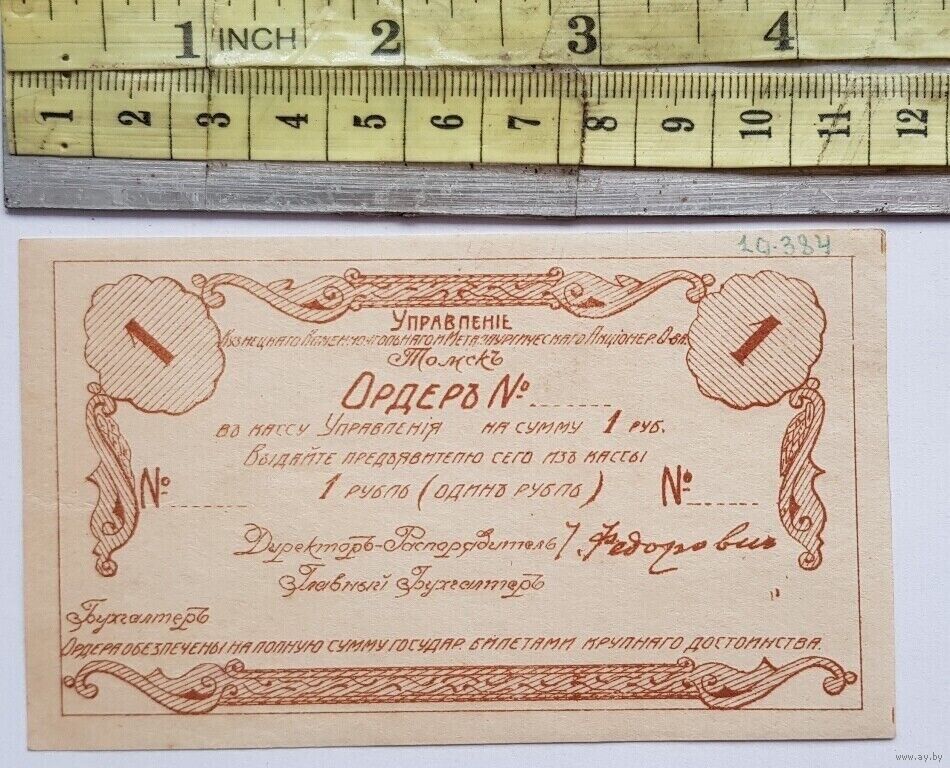 1 INCH 2 3 4
1 2 3 4 5 6 7 8 9 10 11 12
10.384
1 1
Управленіе
Кузнецкаго Каменноугольнаго и Металлургическаго Акціонер. О-ва.
Томскъ
Ордеръ №
въ кассу Управленія на сумму 1 руб.
Выдайте предъявителю сего изъ кассы
№ 1 рубль (одинъ рубль) №
Директоръ-Распорядитель Федорович
Главный Бухгалтеръ "
Бухгалтеръ
Ордера обезпечены на полную сумму государ. билетами крупнаго достоинства.
www.ay.by